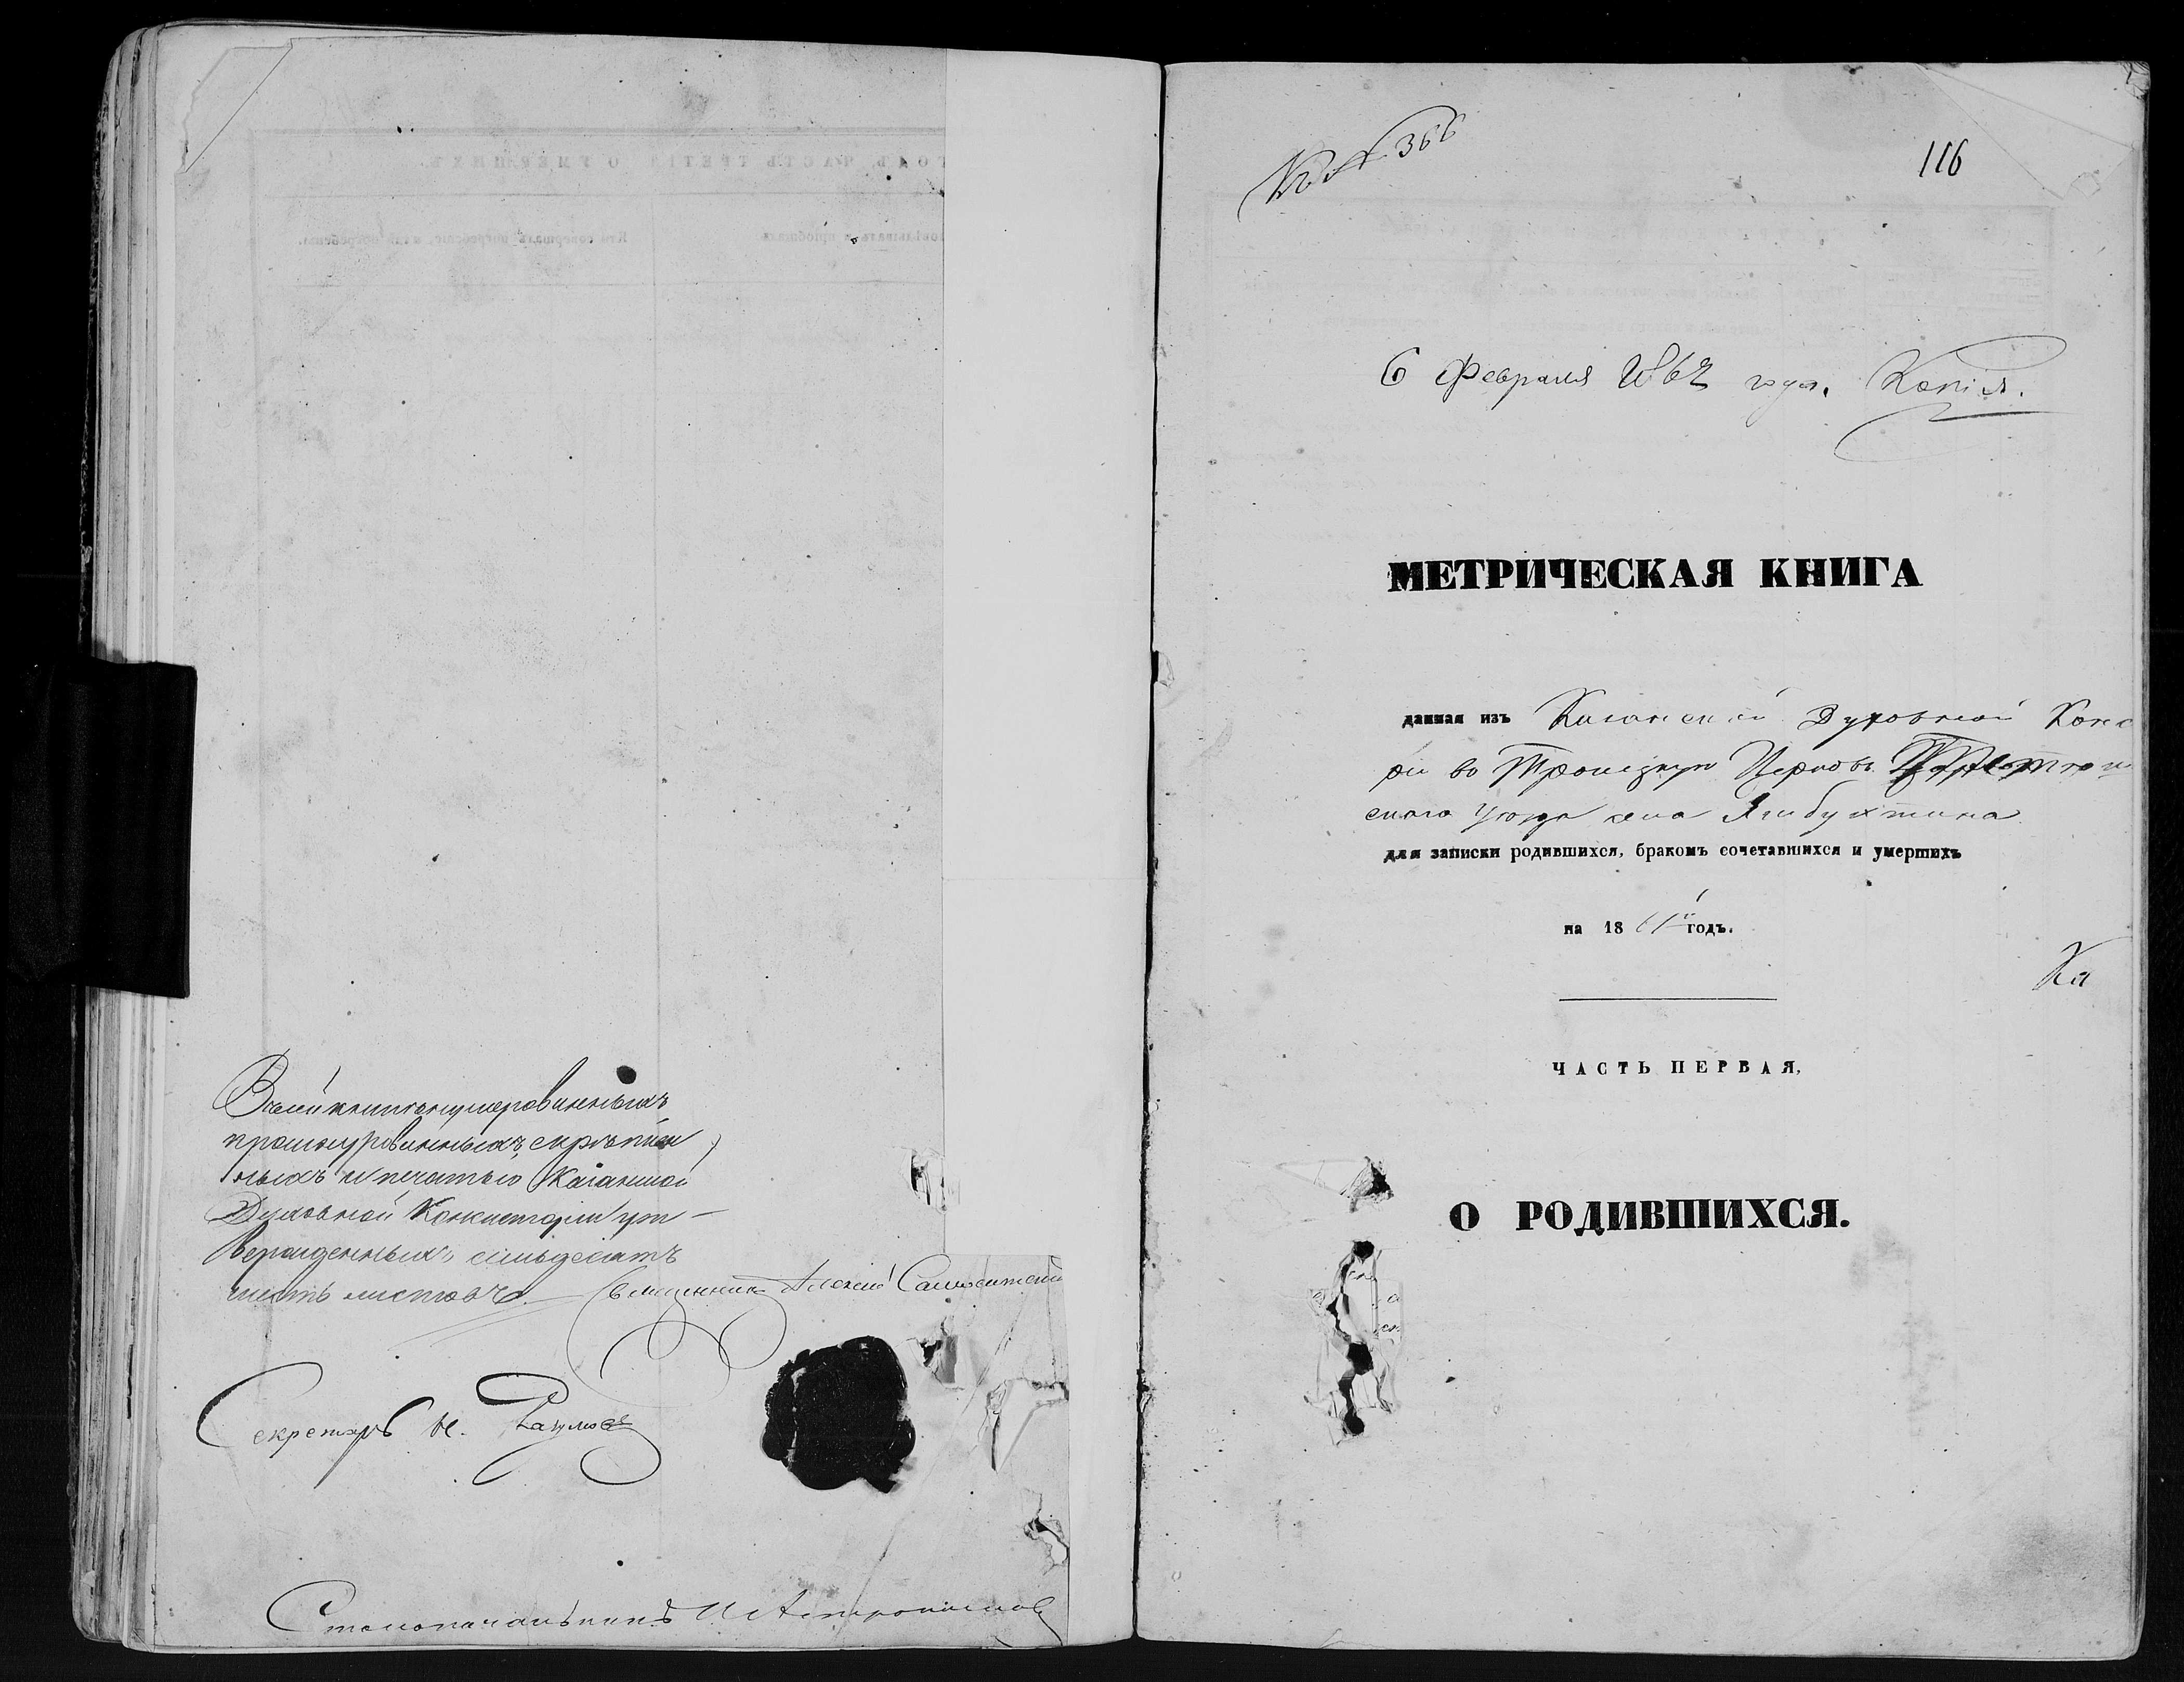 Въ сей книге нумерованныхъ
прошнурованныхъ, скрѣплен
ныхъ и печатью Казанской
Духовной Консисторіи ут-
вержденныхъ, семьдесятъ
шесть листовъ. Священникъ Алексей
Секретарь И. Разумовъ
Столоначальникъ
366
116
6 Февраля 1862 года. Копія.
МЕТРИЧЕСКАЯ КНИГА
данная изъ Казанской Духовной Конс
ріи во Троицкую Церковь
скаго уѣзда села Ямбухтина
для записки родившихся, бракомъ сочетавшихся и умершихъ
на 1861й годъ.
Ка
ЧАСТЬ ПЕРВАЯ,
О РОДИВШИХСЯ.